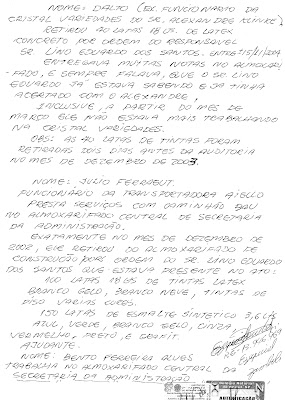 NOME: DALTO (EX. FUNCIONARIO DA
CRISTAL VARIEDADES DO SR. ALEXANDRE
RETIROU 40 LATAS 18 LTS. DE LATEX
CONCRETO POR ORDEM DO RESPONSAVEL
SR. LINO EDUARDO DOS SANTOS. ENTRE
ENTREGAVA MUITAS NOTAS NO ALMOXARI
-FADO, E SEMPRE FALAVA, QUE O SR. LINO
EDUARDO JA ESTAVA SABENDO E JA TINHA
ACERTADO COM O ALEXANDRE.
INCLUSIVE, A PARTIR DO MES DE
MARÇO ELE NÃO ESTAVA MAIS TRABALHANDO
NA CRISTAL VARIEDADES.
OBS: AS 40 LATAS DE TINTAS FORAM
RETIRADAS DOIS DIAS ANTES DA AUDITORIA
NO MES DE DEZEMBRO DE 2003.
NOME: JULIO FERRAGUT
FUNCIONARIO DA TRANSPORTADORA AIELLO
PRESTA SERVIÇOS COM CAMINHÃO BAU
NO ALMOXARIFADO CENTRAL DE SECRETARIA
DA ADMINISTRAÇÃO.
EXATAMENTE NO MES DE DEZEMBRO DE
2002, ELE RETIROU DO ALMOXARIFADO DE
CONSTRUÇÃO POR ORDEM DO SR. LINO EDUARDO
DOS SANTOS QUE ESTAVA PRESENTE NO ATO:
100 LATAS 18 LTS DE TINTAS LATEX
BRANCO GELO, BRANCO NEVE, TINTAS DE
PISO VARIAS CORES.
150 LATAS DE ESMALTE SINTETICO 3,6 LTS
AZUL, VERDE, BRANCO GELO, CINZA,
VERMELHO, PRETO E GRAFIT.
AJUDANTE.
NOME: BENTO FERREIRA ALVES
TRABALHA NO ALMOXARIFADO CENTRAL DA
SECRETARIA DA ADMINISTRAÇÃO
AUTENTICAÇÃO